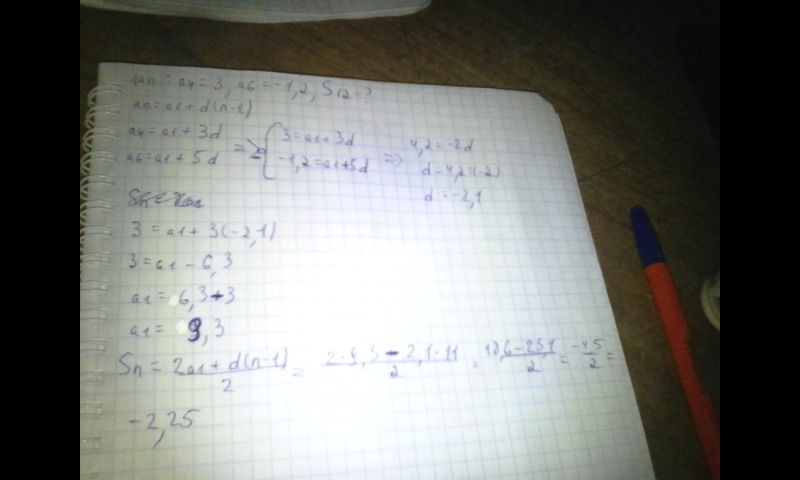 an: a4 = 3, a6 = -1,2, S12 - ?
an = a1 + d(n-1)
a4 = a1 + 3d
a6 = a1 + 5d
=> { 3 = a1 + 3d
-1,2 = a1 + 5d
=> 4,2 = -2d
d = 4,2:(-2)
d = -2,1
3 = a1 + 3(-2,1)
3 = a1 - 6,3
a1 = 6,3 + 3
a1 = 9,3
Sn = 2a1 + d(n-1) / 2 = 2·9,3 - 2,1·11 / 2 = 18,6 - 23,1 / 2 = -4,5 / 2 =
-2,25